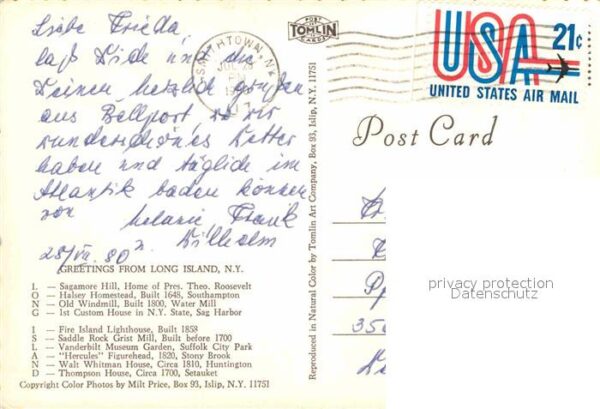 Liebe Frieda,
laß Dich und die
Deinen herzlich grüßen
aus Bellport, wo wir
wunderschönes Wetter
haben und täglich im
Atlantik baden können
von Melanie, Frank
Wilhelm
80
GREETINGS FROM LONG ISLAND, N.Y.
L — Sagamore Hill, Home of Pres. Theo. Roosevelt
O — Halsey Homestead, Built 1648, Southampton
N — Old Windmill, Built 1800, Water Mill
G — 1st Custom House in N.Y. State, Sag Harbor
I — Fire Island Lighthouse, Built 1858
S — Saddle Rock Grist Mill, Built before 1700
L — Vanderbilt Museum Garden, Suffolk City Park
A — "Hercules" Figurehead, 1820, Stony Brook
N — Walt Whitman House, Circa 1810, Huntington
D — Thompson House, Circa 1700, Setauket
Copyright Color Photos by Milt Price, Box 93, Islip, N.Y. 11751
Reproduced in Natural Color by Tomlin Art Company, Box 93, Islip, N.Y. 11751
POST
TOMLIN
CARDS
SMITHTOWN, N.Y.
USA 21¢
UNITED STATES AIR MAIL
Post Card
350
privacy protection
Datenschutz